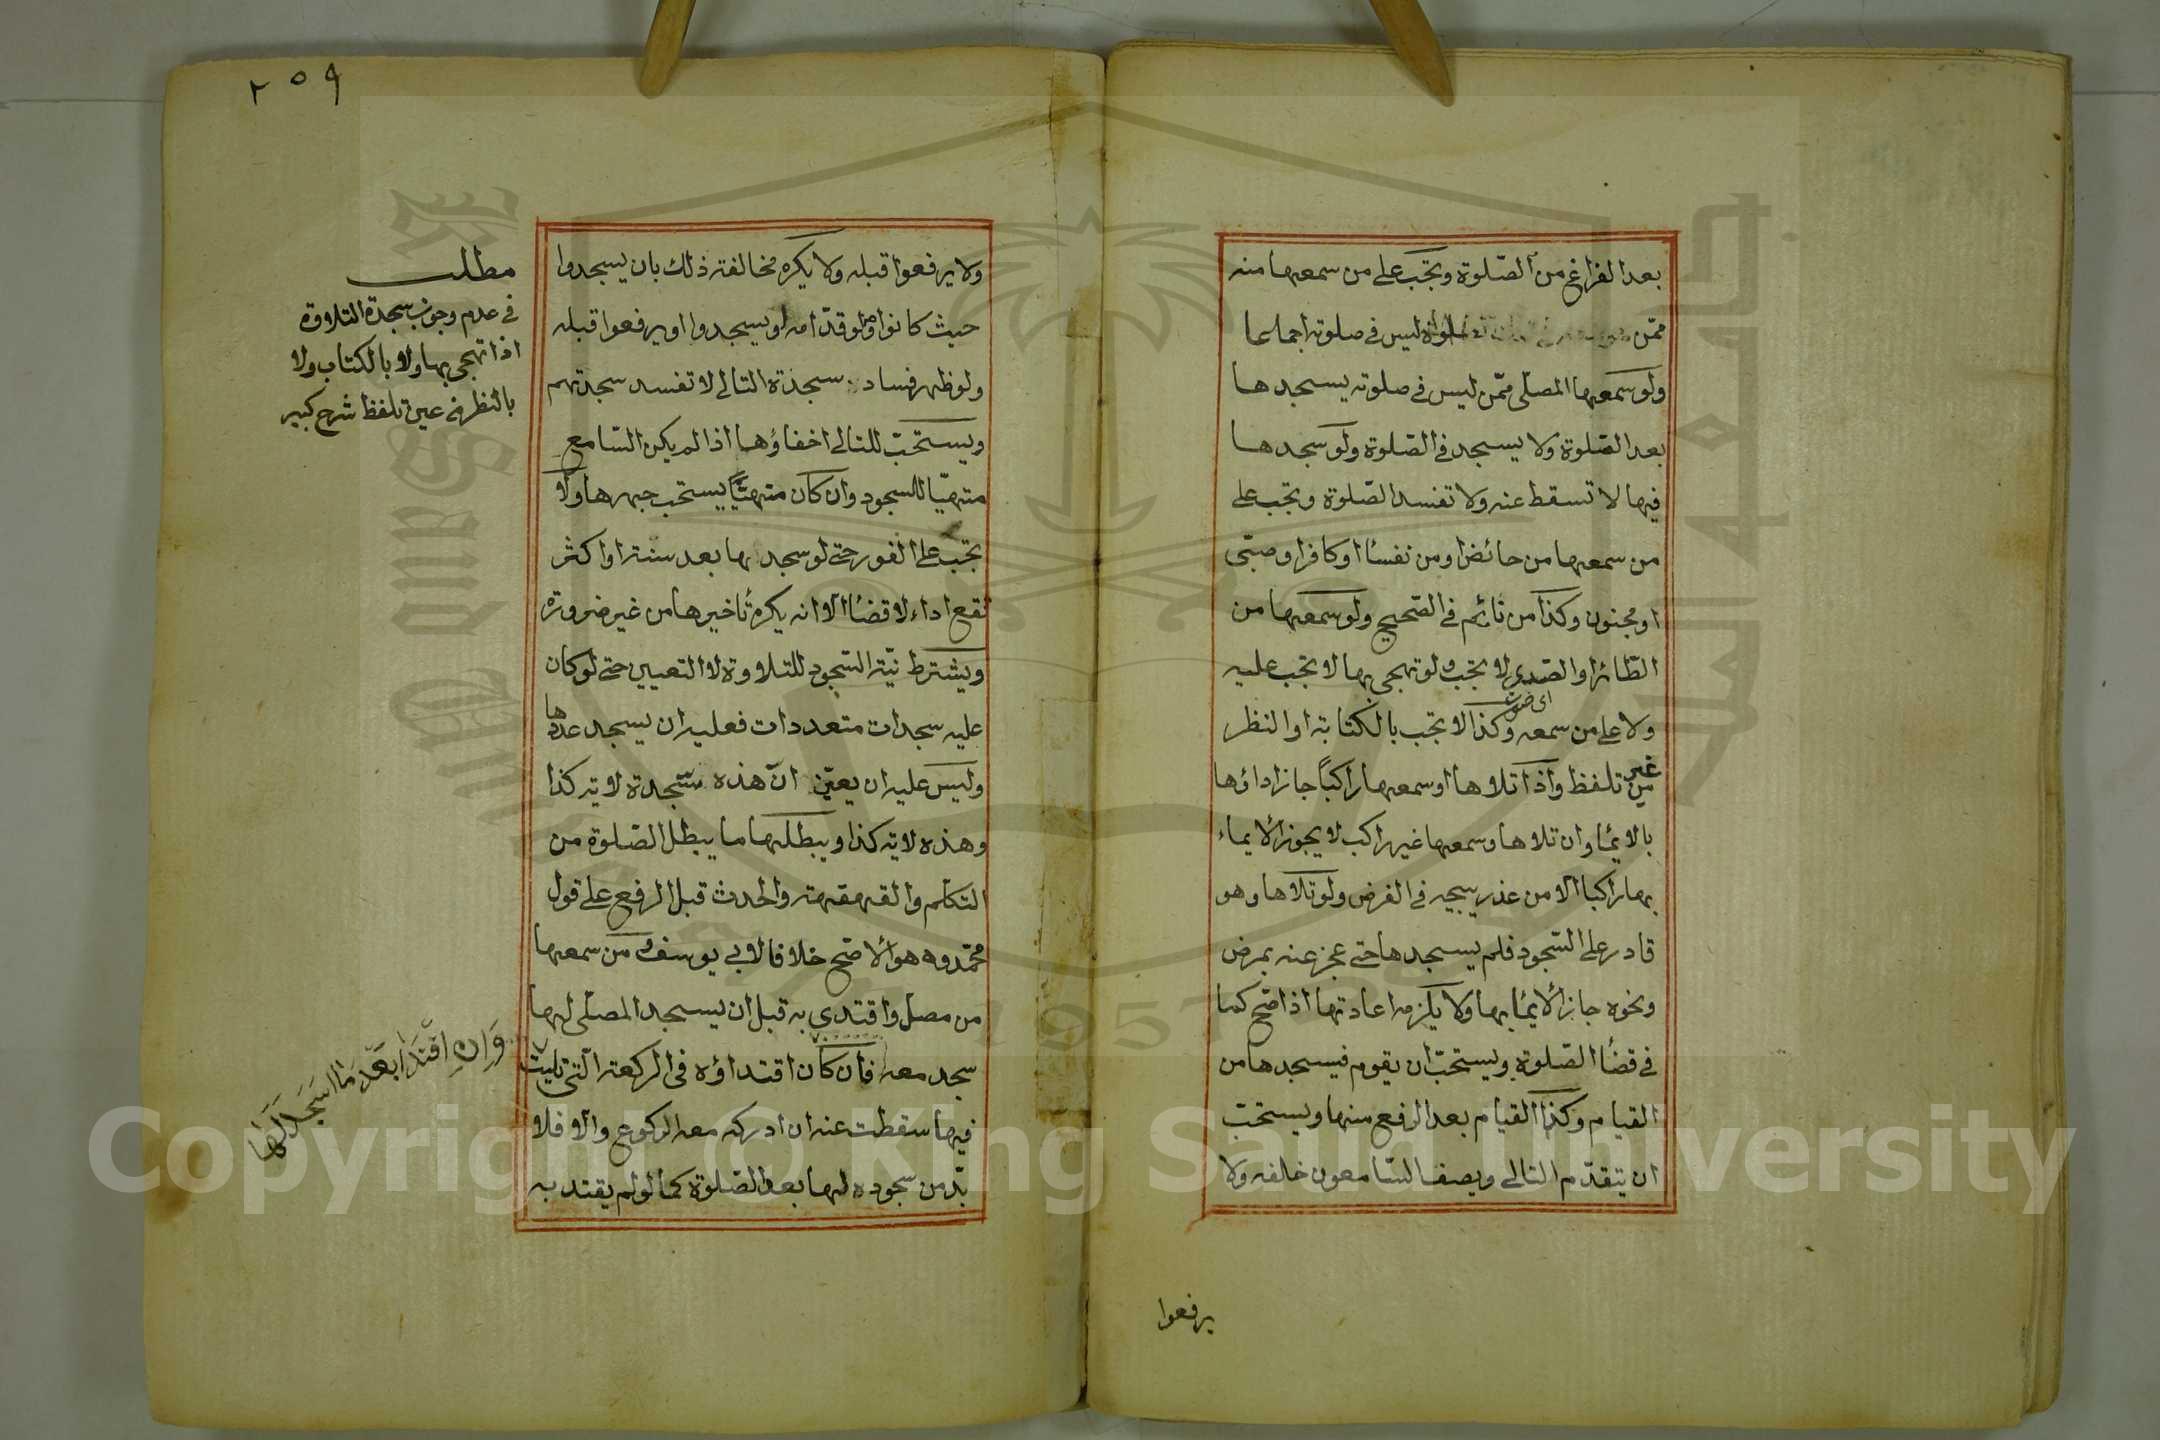 بعد الفراغ من الصّلوة وتجب على من سمعها منه
ممّن ليس فى صلوته اجماعا
ولو سمعها المصلّى ممّن ليس فى صلوته يسجدها
بعد الصّلوة ولا يسجد فى الصّلوة ولو سجدها
فيها لا تسقط عنه ولا تفسد الصّلوة وتجب على
من سمعها من حائض او من نفساء او كافر او صبّى
او مجنون وكذا من نائم فى الصّحيح ولو سمعها من
الطّائر او الصّدى لا تجب ولو تهجى بها لا تجب عليه
اى صوت
ولا على من سمعه وكذا لا تجب بالكتابة او النظر
من غير تلفظ واذا تلاها او سمعها راكباً جاز اداؤها
بالايماء وان تلاها وسمعها غير راكب لا يجوز الايماء
بها راكبا الا من عذر يبيح فى الفرض ولو تلاها وهو
قادر على السّجود فلم يسجدها حتى عجز عنه بمرض
ونحوه جاز الايماء بها ولا يلزمه اعادتها اذا صّح كما
فى قضاء الصّلوة ويستحبّ ان يقوم فيسجدها من
القيام وكذا القيام بعد الرفع منها ويستحبّ
ان يتقدّم التالى ويصف السّامعون خلفه ولا
يرفعوا
٢٥٩
ولا يرفعوا قبله ولا يكره مخالفته ذلك بان يسجدوا
حيث كانوا ولو قدّامه او يسجدوا او يرفعوا قبله
ولو ظهر فساد سجدة التالى لا تفسد سجدتهم
ويستحبّ للتالى اخفاؤها اذا لم يكن السّامع
متهيّا للسجود وان كان متهيّاً يستحب جهرها ولا
تجب على الفور حتى لو سجد بها بعد سنة او اكثر
تقع اداء لا قضاء الا انه يكره تأخيرها من غير ضرورة
ويشترط نيّة السّجود للتلاوة لا التعيين حتى لو كان
عليه سجدات متعددات فعليه ان يسجد عددها
وليس عليه ان يعيّن انّ هذه سّجدة لاية كذا
وهذه لاية كذا ويبطلها ما يبطل الصّلوة من
التكلّم والقهقهة والحدث قبل الرفع على قول
محمّد وهو الاصّح خلافا لابى يوسف ومن سمعها
من مصلّ واقتدى به قبل ان يسجد المصلّى لها
سجد معه فان كان اقتداؤه فى الركعة الّتى تليت
فيها سقطت عنه ان ادركه معه الركوع والا فلا
بدّ من سجوده لها بعد الصّلوة كما لو لم يقتد به
مطلب
فى عدم وجوب سجدة التلاوة
اذا تهجى بها ولا بالكتاب ولا
بالنظر فى عين تلفظ شرح كبير
وَاِنِ اقْتَدَا بَعْدَ مَا السَجَدَ لَهَا
Copyright © King Saud University
1957